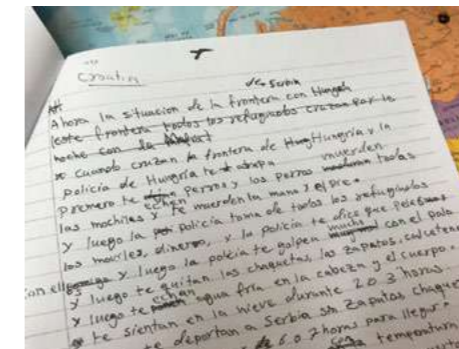 Croatia
de Serbia
Ahora la situacion de la frontera con Hungah
este frontera todos los refugiados cruzan por la
noche con la
cuando cruzan la frontera de Hungria y la
policia de Hungria te atrapa
premero te echan perros y los perros muerden todas
las mochilas y te muerden la mano y el pie.
y luego la policia toma de todos los refugiados
los moviles, dinero, y la policia te dice que peleemos
con ellos y luego la policia te golpea mucho con el palo
y luego te quitan las chaquetas, las zapatos, calcetene
y luego te echan agua fria en la cabeza y el cuerpo.
te sientan en la nieve durante 2 o 3 horas.
te deportan a Serbia sin zapatos, chaque
6 o 7 horas para llegar
temperatura